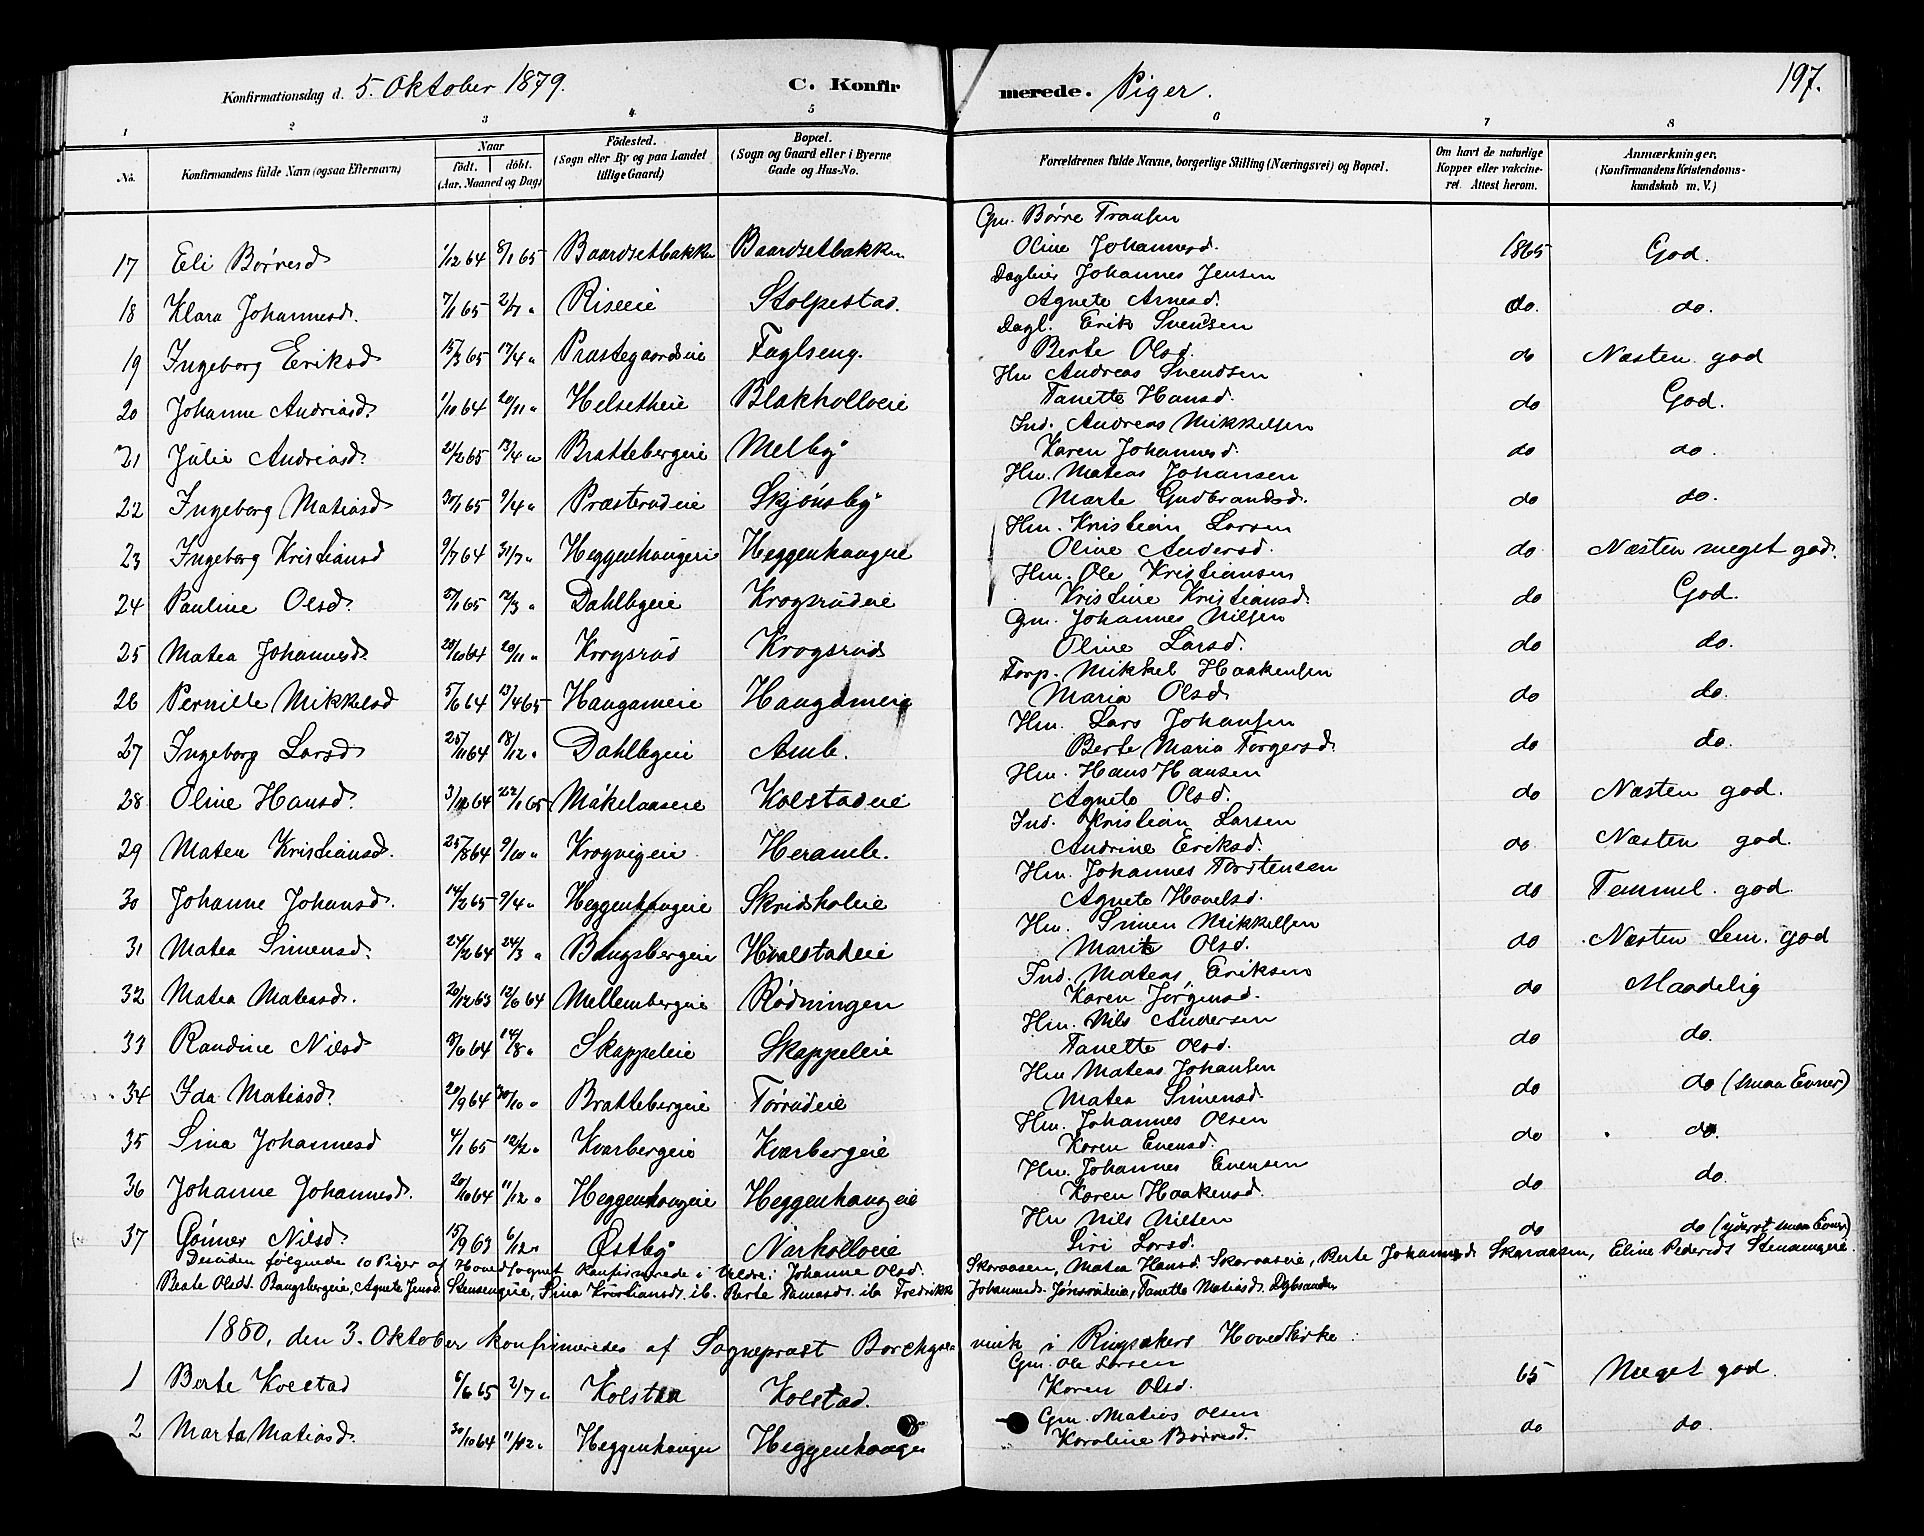 Konfirmationsdag d. 5. Oktober 1879. C. Konfirmerede. Piger. 197.
1 2 3 4 5 6 7 8
No. Konfirmandens fulde Navn (ogsaa Efternavn) Naar födt. döbt. (Aar, Maaned og Dag) Födested. (Sogn eller By og paa Landet tillige Gaard) Bopæl. (Sogn og Gaard eller i Byerne Gade og Hus-No. Forældrenes fulde Navne, borgerlige Stilling (Næringsvei) og Bopæl. Om havt de naturlige Kopper eller vakcineret. Attest herom. Anmærkninger. (Konfirmandens Kristendomskundskab m. V.)
Gm. Börre Fransen
17 Eli Börresd 1/12 64 8/1 65 Baardsetbakken Baardsetbakken Oline Johannesd. 1865 God.
Dagleier Johannes Jensen
18 Klara Johannesd. 7/1 65 2/7 " Riseeie Stolpestad. Agnete Arnesd. do. do.
Dagl. Erik Svensen
19 Ingeborg Eriksd 15/3 65 17/4 " Præstegaardseie Faglseng. Berte Olsd. do Næsten god
Hm Andreas Svendsen
20 Johanne Andreasd. 1/10 64 20/11 " Helsetheie Blakholloeie Tanette Hansd. do God.
Ind. Andreas Mikkelsen
21 Julie Andreasd. 21/2 65 17/4 " Brattebergeie Melby Karen Johannesd. do do.
Hm. Mateas Johansen
22 Ingeborg Matiasd 30/1 65 9/4 " Præsterudeie Skjönsby Marte Gudbrandsd. do do.
Hm. Kristian Larsen
23 Ingeborg Kristiansd 9/7 64 31/7 " Heggenhaugeie Heggenhaugeie Oline Andersd. do Næsten meget god.
Hm. Ole Kristiansen
24 Pauline Olsd. 5/1 65 12/3 " Dahlbyeie Krogsrudeie Kristine Kristiansd. do God.
Gm. Johannes Nilsen
25 Matea Johannesd. 28/10 64 20/11 " Krogsrud Krogsrud Oline Larsd. do do.
Torp. Mikkel Haakensen
26 Pernille Mikkelsd 5/6 64 13/4 65 Haugameie Haugameie Maria Olsd do do.
Hm. Lars Johansen
27 Ingeborg Larsd 25/11 64 18/12 " Dahlbyeie Amb. Berte Maria Torgersd. do do.
Hm. Hans Hansen
28 Oline Hansd. 3/10 64 22/1 65 Mákelaaseie Kolstadeie Agnete Olsd. do Næsten god.
Ind. Kristian Larsen
29 Matea Kristiansd. 25/8 64 9/10 " Krogvigeie Heramb. Andrine Eriksd. do Næsten god.
Hm. Johannes Torstensen
30 Johanne Johansd. 14/2 65 9/4 " Heggenhaugeie Skridsholeie Agnete Hovelsd. do Temmel. god
Hm. Simen Mikkelsen
31 Matea Simensd. 24/2 64 24/3 " Bangsbergeie Hvalstadeie Marit Olsd. do Næsten tem. god
Ind. Mateas Eriksen
32 Matea Mateasd. 20/12 63 12/6 64 Mellembergeie Rödningen Karen Jörgensd. do Maadelig
Hm. Nils Andersen
33 Randine Nilsd 8/6 64 14/8 " Skappeleie Skappeleie Tanette Olsd. do do.
Hm Mateas Johansen
34 Ida Matiasd. 20/9 64 30/10 " Brattebergeie Törrudeie Matea Simensd. do do (smaa Evner)
Hm. Johannes Olsen
35 Sina Johannesd 4/1 65 12/2 " Kvarbergeie Kvarbergeie Karen Evensd. do do.
Hm. Johannes Evensen
36 Johanne Johannesd. 20/10 64 11/12 " Heggenhaugeie Heggenhaugeie Karen Haakensd. do do.
Hm Nils Nilsen
37 Gönner Nilsd. 15/9 63 6/12 " Östby Narkolloeie Siri Larsd. do do (yderst smaa Evner)
Desuden følgende 10 Piger af Hovedsognet Konfirmerede i Veldre: Johanne Olsd. Skaraasen, Matea Hansd. Skaraaseie, Berte Johannesd Skaraasen, Eline Pedersd. Stensengeie
Beate Olsdt. Bangsbergeie, Agnete Jensd. Stensengeie, Sina Kristiansd. ib. Berte Tamasd. ib. Fredrikke Johannesd. Jönsrudeie, Tanette Matiasd. Dybsanden
1880, den 3. Oktober konfirmeredes af Sognepræst Borchgrevink i Ringsakers Hovedkirke:
Gm. Ole Larsen
1 Berte Kolstad 6/6 65 2/7 " Kolstad Kolstad. Karen Olsd. 65 Meget god.
Gm. Matias Olsen
2 Marta Matiasd. 30/10 64 11/12 " Heggenhaugen Heggenhaugen Karoline Börresd. do do.